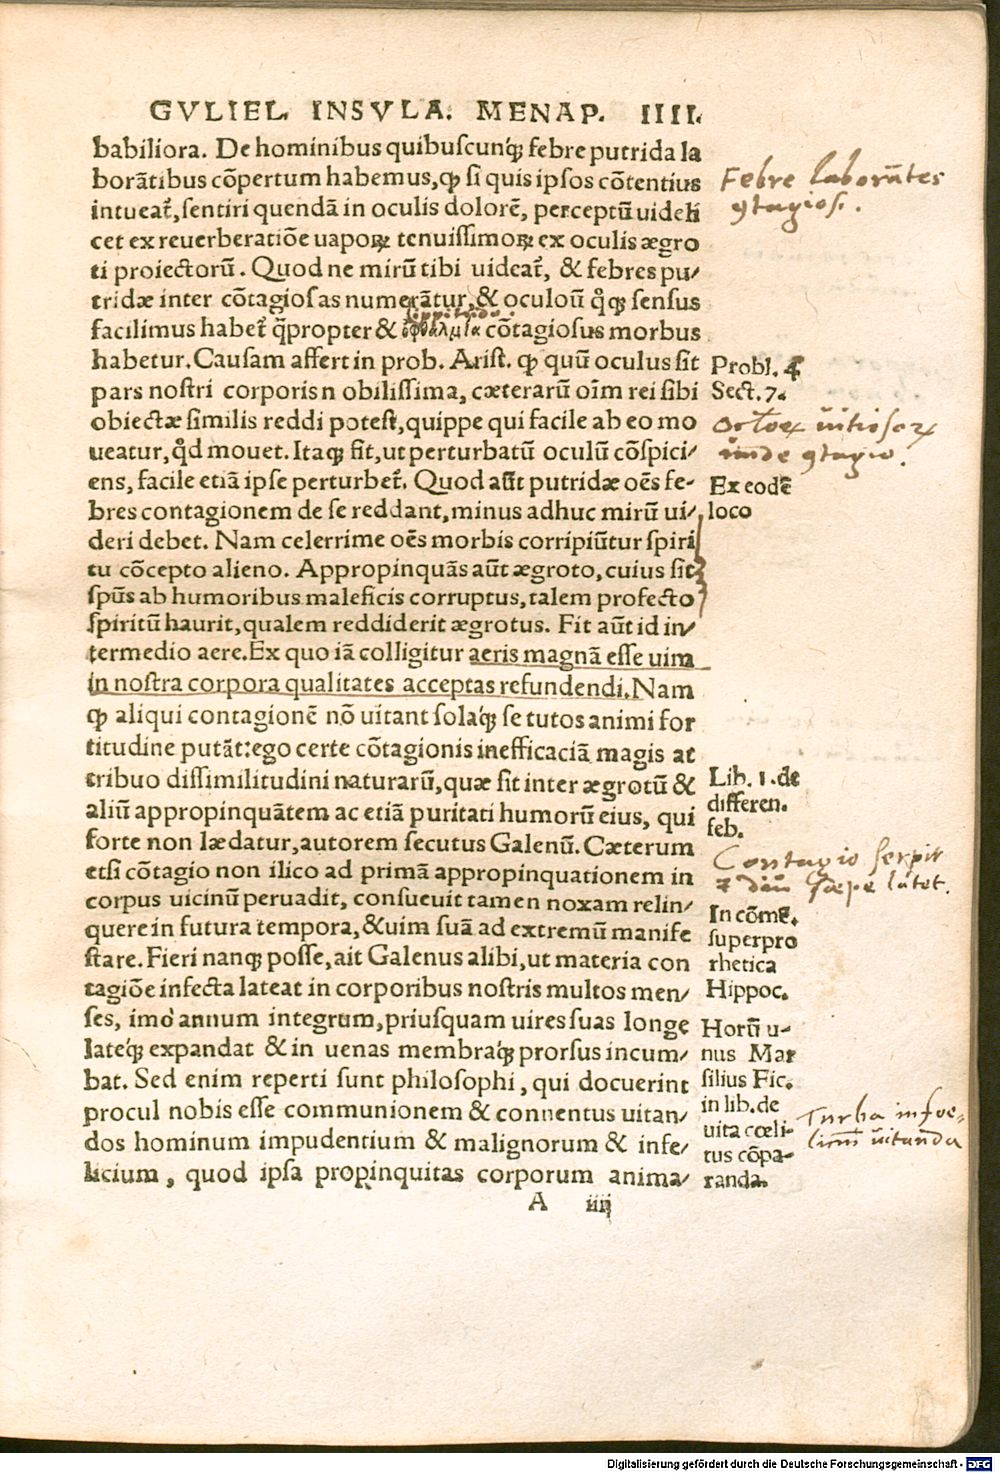 GVLIEL. INSVLA. MENAP. IIII.
babiliora. De hominibus quibuscunq́ꝫ febre putrida la
borãtibus cõpertum habemus, ꝙ si quis ipsos cõtentius
intueat᷑, sentiri quendã in oculis dolorẽ, perceptũ uideli
cet ex reuerberatiõe uaporꝝ tenuissimorꝝ ex oculis ægro
ti proiectorũ. Quod ne mirũ tibi uideat᷑, & febres pu/
tridæ inter cõtagiosas numerãtur, & oculoũ qͥqꝫ sensus
lippitudo.
facilimus habet᷑ q̃propter & ὀφθαλμία cõtagiosus morbus
habetur. Causam affert in prob. Arist. ꝙ quũ oculus sit
pars nostri corporis n obilissima, cæterarũ oĩm rei sibi
obiectæ similis reddi potest, quippe qui facile ab eo mo
ueatur, qͦd mouet. Itaqꝫ fit, ut perturbatũ oculũ cõspici/
ens, facile etiã ipse perturbet᷑. Quod aũt putridæ oẽs fe-
bres contagionem de se reddant, minus adhuc mirũ ui/
deri debet. Nam celerrime oẽs morbis corripiũtur spiri
tu cõcepto alieno. Appropinquãs aũt ægroto, cuius sit
spũs ab humoribus maleficis corruptus, talem profecto
spiritũ haurit, qualem reddiderit ægrotus. Fit aũt id in/
termedio aere. Ex quo iã colligitur aeris magnã esse uim
in nostra corpora qualitates acceptas refundendi. Nam
ꝙ aliqui contagionẽ nõ uitant solaq́ꝫ se tutos animi for
titudine putãt: ego certe cõtagionis inefficaciã magis at
tribuo dissimilitudini naturarũ, quæ sit inter ægrotũ &
aliũ appropinquãtem ac etiã puritati humorũ eius, qui
forte non lædatur, autorem secutus Galenũ. Cæterum
etsi cõtagio non ilico ad primã appropinquationem in
corpus uicinũ peruadit, consueuit tamen noxam relin/
quere in futura tempora, & uim suã ad extremũ manife
stare. Fieri nanqꝫ posse, ait Galenus alibi, ut materia con
tagiõe infecta lateat in corporibus nostris multos men/
ses, imò annum integrum, priusquam uires suas longe
lateq́ꝫ expandat & in uenas membraq́ꝫ prorsus incum/
bat. Sed enim reperti sunt philosophi, qui docuerint
procul nobis esse communionem & conuentus uitan/
dos hominum impudentium & malignorum & infe/
licium, quod ipsa propinquitas corporum anima/
A iiij
Febre laborãtes
ꝯtagiosi.
Probl. 4
Sect. 7.
uitiosorꝝ
inde ꝯtagio.
Ex eodẽ
loco
Lib. 1. de
differen.
feb.
Contagio serpit
& diu sæpe latet.
In cõmẽ.
superpro
rhetica
Hippoc.
Horũ u-
nus Mar
silius Fic.
in lib. de
uita cœli-
tus cõpa-
randa.
Turba infoe-
licium uitanda
Digitalisierung gefördert durch die Deutsche Forschungsgemeinschaft - DFG